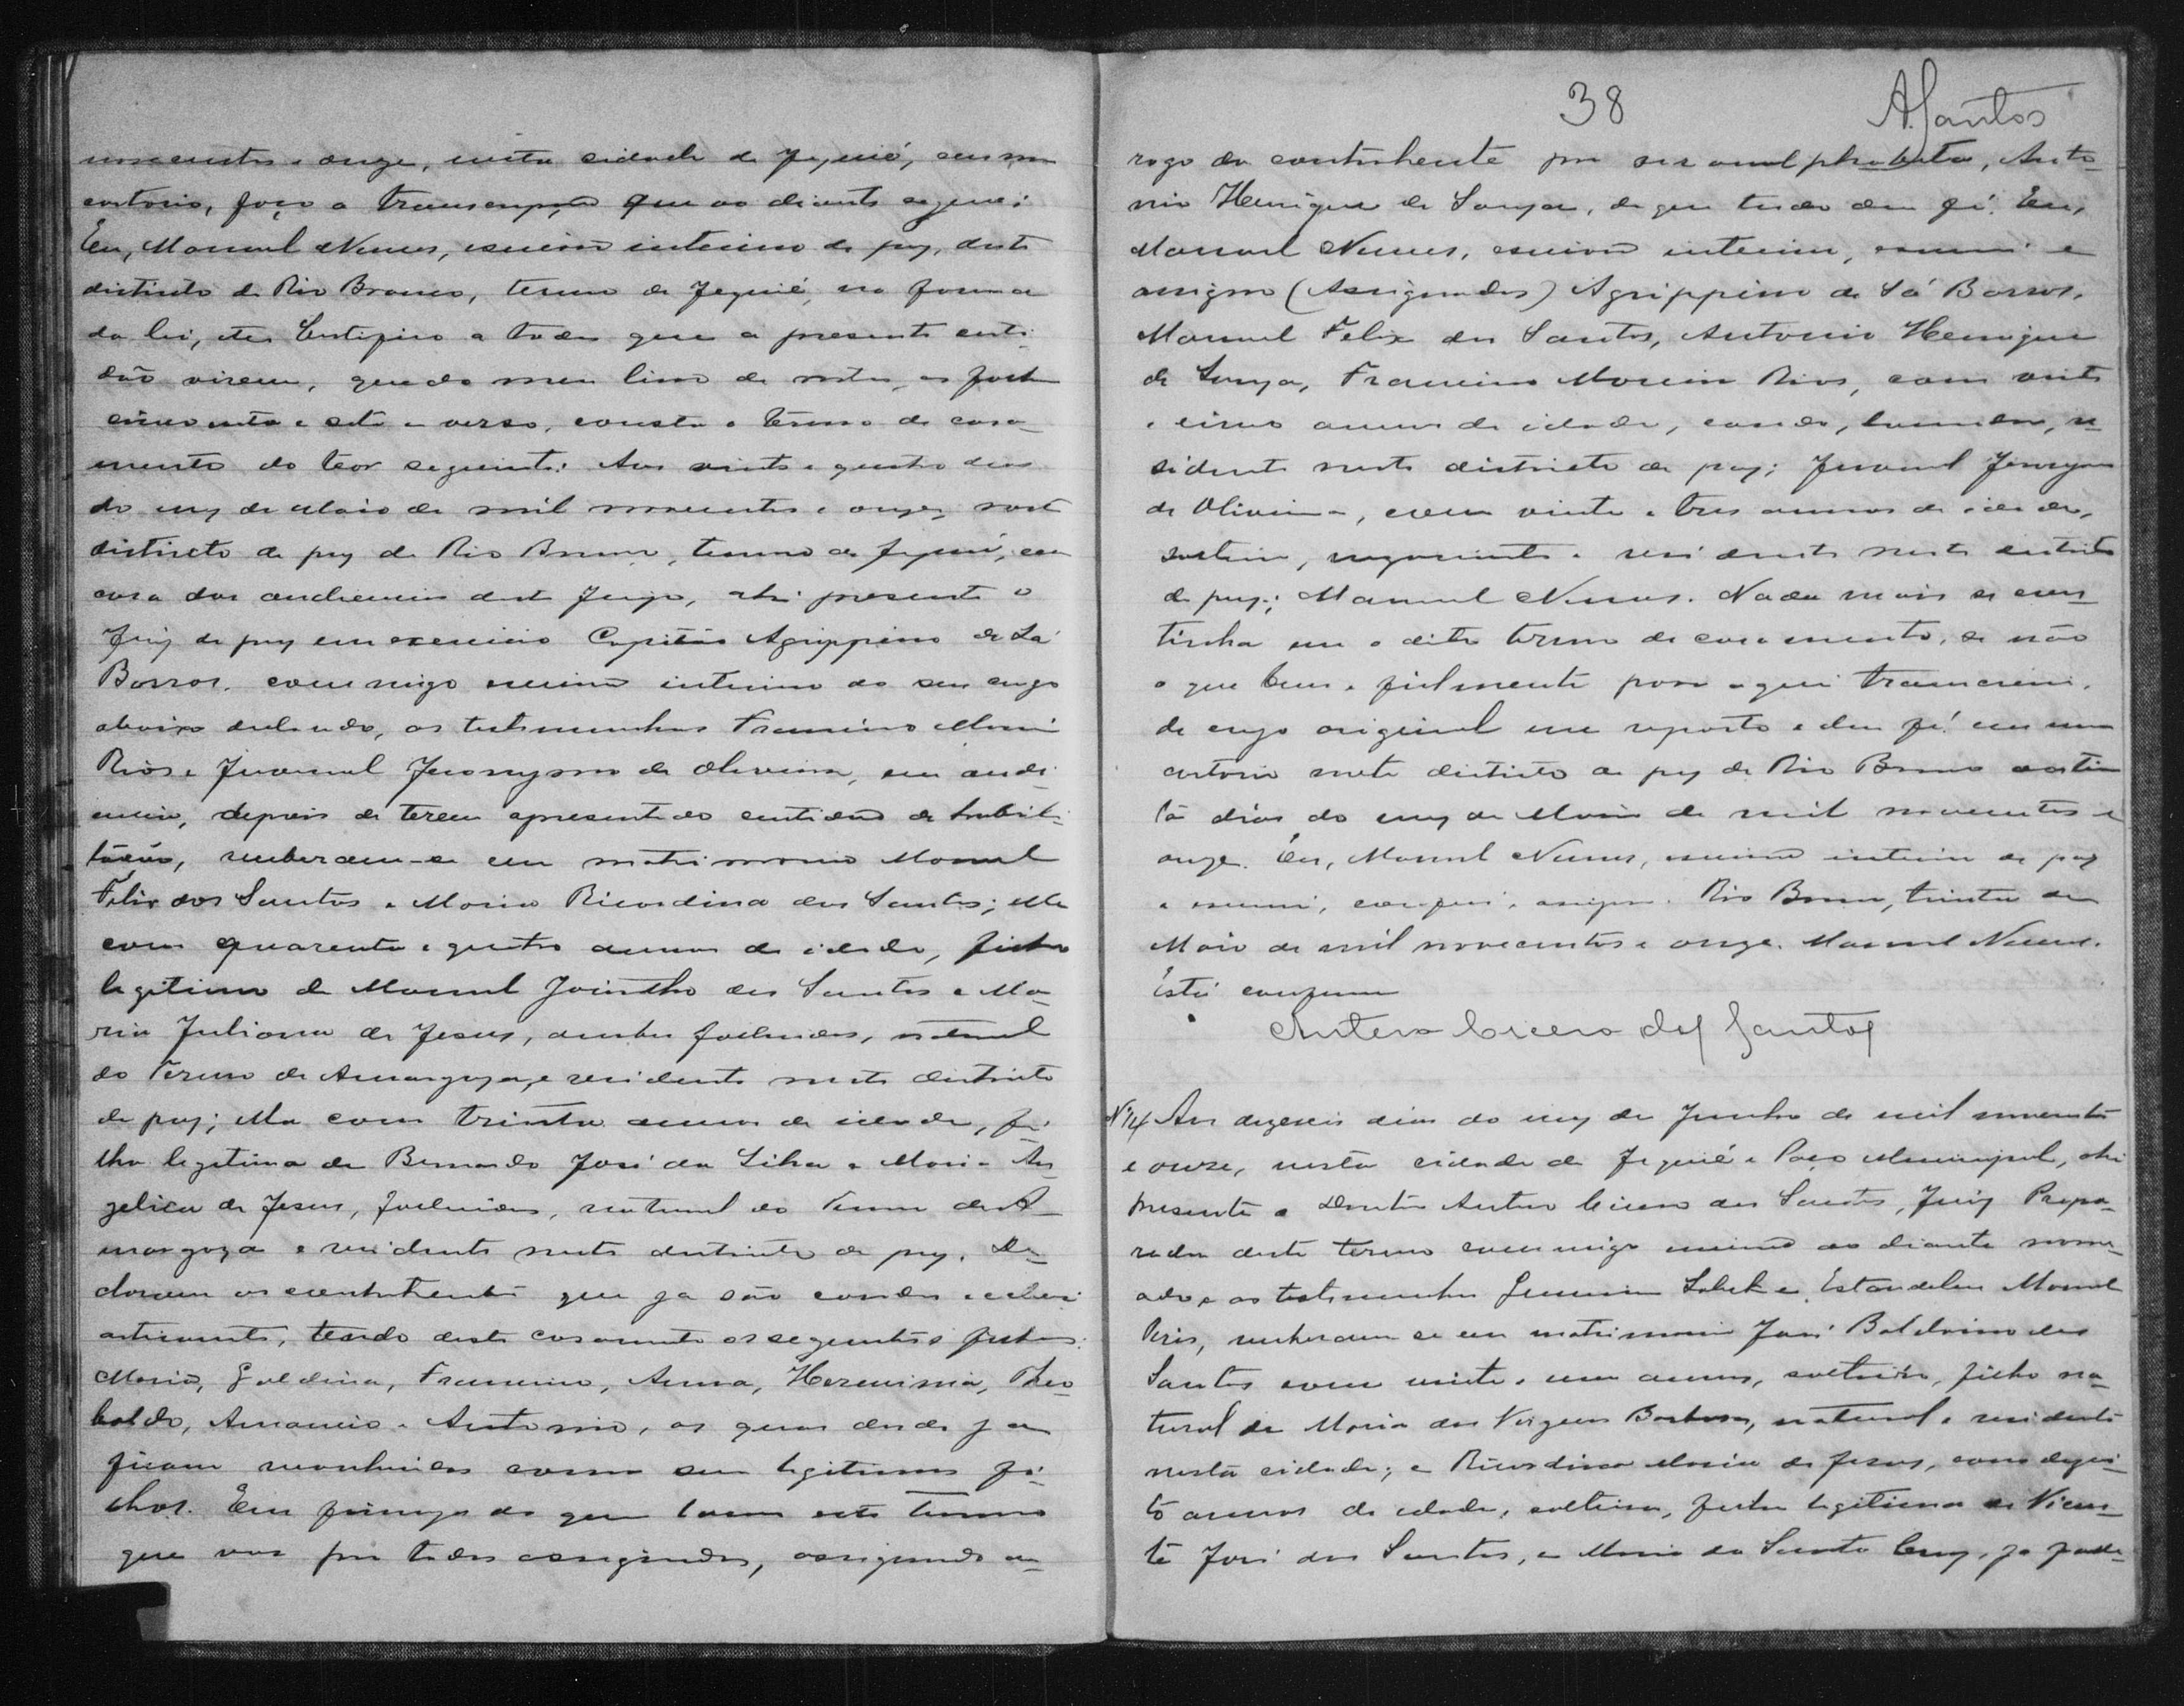 novecentos e onze, nesta cidade de Jequié, em meu
cartorio, faço a transcripção que ao diante segue:
Eu, Manuel Nunes, escrivão interino de paz, deste
districto de Rio Branco, termo de Jequié, na forma
da lei, etc. Certifico a todos que a presente certi-
dão virem, que do meu livro de notas, as folhas
cincoenta e sete e verso, consta o termo de casa-
mento do teor seguinte: Aos vinte e quatro dias
do mez de Maio de mil novecentos e onze, neste
districto de paz de Rio Branco, termo de Jequié, em
casa das audiencias deste Juizo, ahi presente o
Juiz de paz em exercicio Capitão Agrippino de Sá
Barros, commigo escrivão interino do seu cargo
abaixo declarado, as testemunhas Francino
Rios e Juvenal Jeronymo de Oliveira, em audi-
encia, depois de terem apresentado certidão de habili-
tação, receberam-se em matrimonio Manuel
Felix dos Santos e Maria Ricardina dos Santos; elle
com quarenta e quatro annos de idade, filho
legitimo de Manuel Jacintho dos Santos e Ma-
ria Juliana de Jesus, ambos fallecidos, natural
do Termo de Amargoza, e residente neste districto
de paz; ella com trinta annos de idade, fi-
lha legitima de Bernardo José da Silva e Maria An-
gelica de Jesus, fallecidos, natural do Termo de A-
margoza e residente neste districto de paz. De-
claram os contrahentes que ja são casados eclesi-
asticamente, tendo deste casamento os seguintes filhos:
Maria, Galdina, Francino, Anna, Herminia, Theo-
baldo, Amancio e Antonio, os quaes desde ja
ficam reconhecidos como seus legitimos fi-
lhos. Em firmeza do que lavrei este termo
que vae por todos assignados, assignando a
38 A. Santos
rogo da contrahente por ser analphabeta, Anto-
nio Henrique de Souza, de que tudo dou fé. Eu,
Manuel Nunes, escrivão interino, escrevi e
assigno (Assignados) Agrippino de Sá Barros.
Manuel Felix dos Santos, Antonio Henrique
de Souza, Francino Rios, com vinte
e cinco annos de idade, casado, re-
sidente neste districto de paz; Juvenal Jeronymo
de Oliveira, com vinte e tres annos de idade,
solteiro, negociante e residente neste districto
de paz; Manuel Nunes. Nada mais se con-
tinha em o dito termo de casamento, se não
o que bem e fielmente para aqui transcrevi,
de cujo original me reporto e dou fé em meu
cartorio neste districto de paz de Rio Branco
dias do mez de Maio de mil novecentos e
onze. Eu, Manuel Nunes, escrivão interino de paz
e escrevi, conferi e assigno. Rio Branco, trinta de
Maio de mil novecentos e onze. Manuel Nunes.
Está conforme
Antero Cicero dos Santos
Nº 14 Aos dezeseis dias do mez de Junho de mil novecentos
e onze, nesta cidade de Jequié e Paço Municipal, ahi
presente o Doutor Antero Cicero dos Santos, Juiz Prepa-
rador deste termo commigo escrivão ao diante nome-
ado e as testemunhas Estandelau Manuel
Pires, receberam se em matrimonio José Baldoino dos
Santos com vinte e um annos, solteiro, filho na-
tural de Maria das Virgens Barbosa, natural e residente
nesta cidade; e Ricardina Maria de Jesus, com dezoi-
to annos de idade, solteira, filha legitima de Vicen-
te José dos Santos, e Maria da Santa Cruz, ja falle-